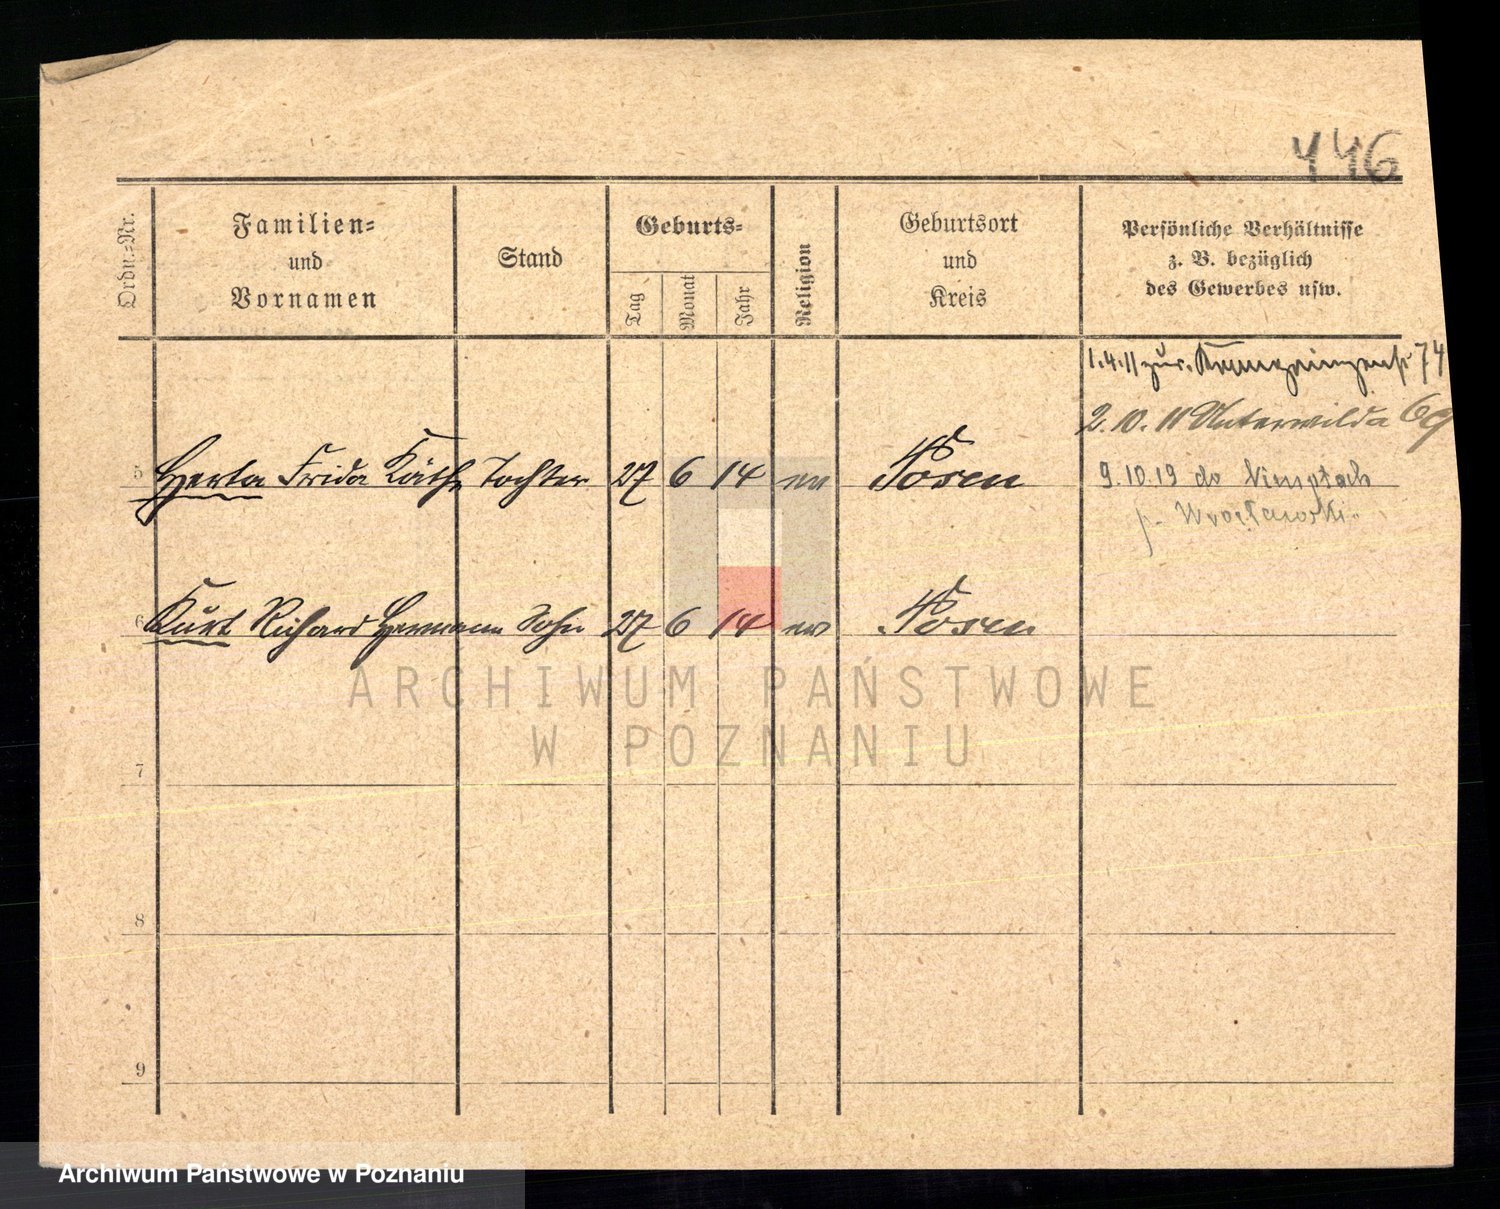 446
Ordn.-Nr.
Familien-
und
Vornamen
Stand
Geburts-
Tag
Monat
Jahr
Religion
Geburtsort
und
Kreis
Persönliche Verhältnisse
z. B. bezüglich
des Gewerbes usw.
1.4.11 zur. Kronprinzenstr 74
2.10.11 Unterwilda 69
5 Herta Frida Käthe Tochter 27 6 14 ev Posen
9.10.19 do Nimptsch
p. Wrocławski
6 Kurt Richard Hermann Sohn 27 6 14 ev Posen
ARCHIWUM PAŃSTWOWE
W POZNANIU
7
8
9
Archiwum Państwowe w Poznaniu